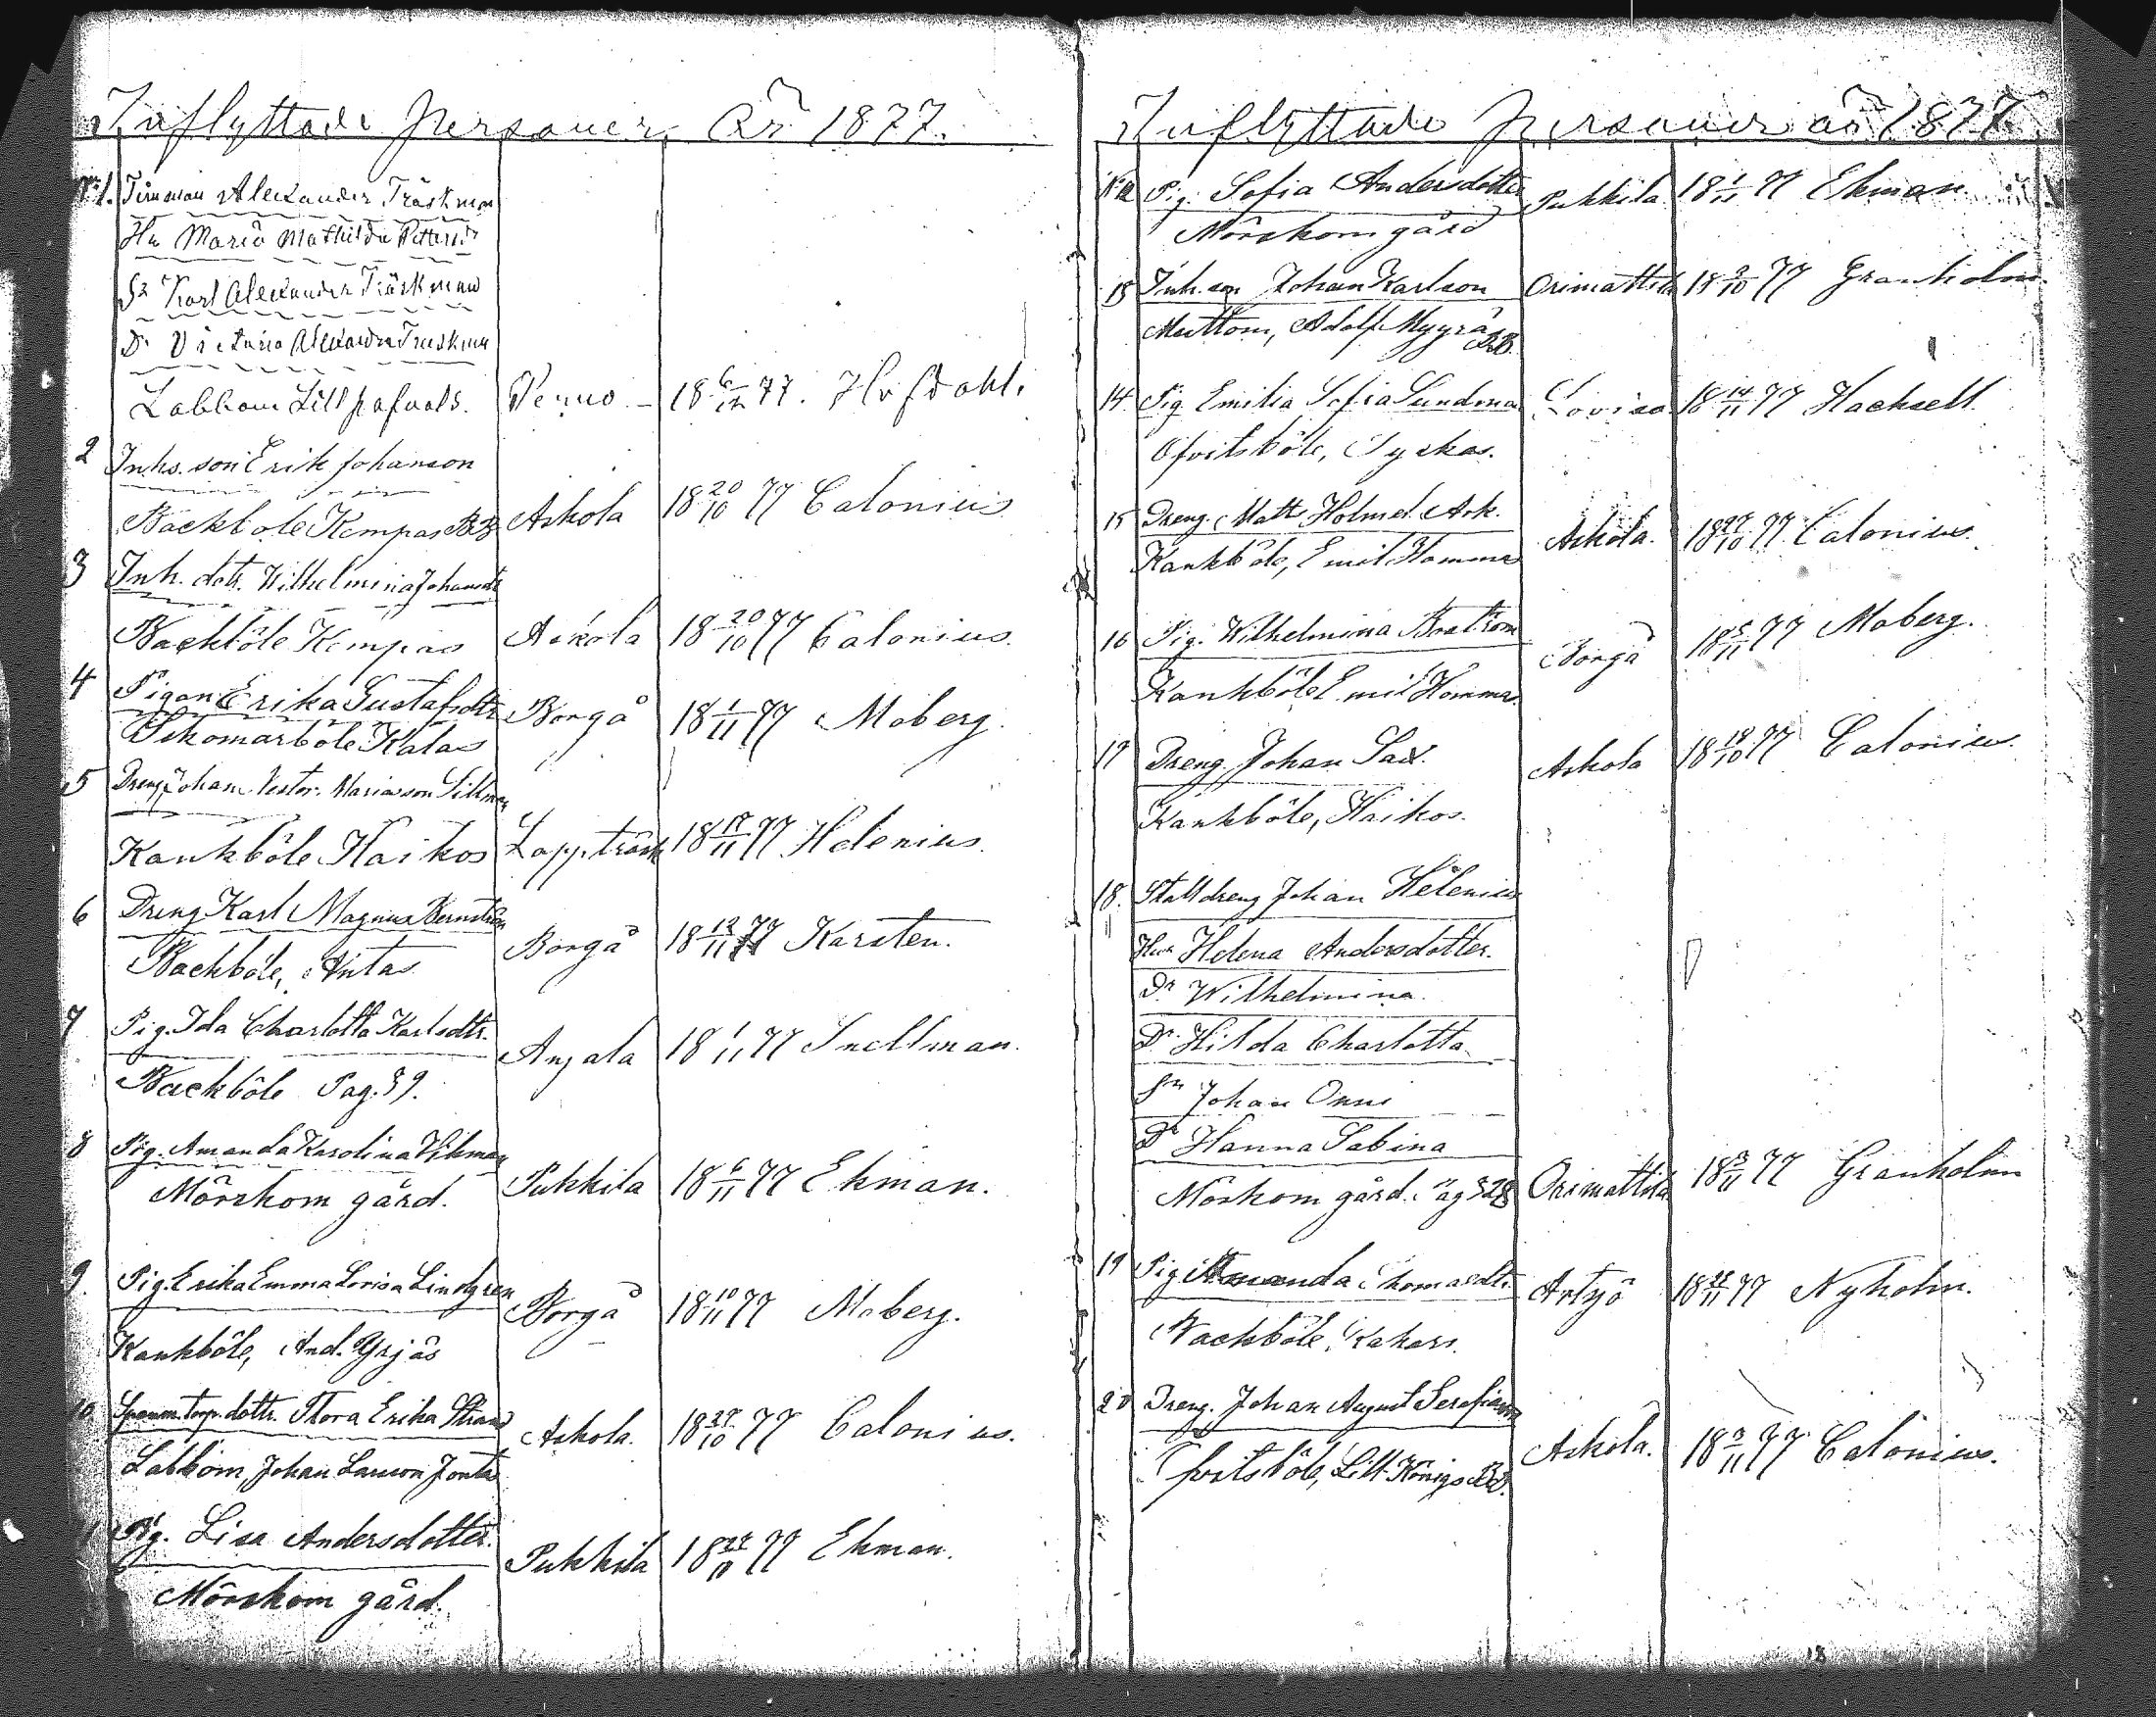 Inflyttade personer år 1877.
No 1. Timman Alexander Träskman
Hu Maria Mathilda Pettersdr
Sn Karl Alexander Träskman
Dr Victoria Alexandra Träskman
Labbom Lill Perno 18 6/12 77. Hofdahl.
2 Inhs. son Erik Johanson
Backböle Kempas Askola 18 20/10 77 Calonius
3 Inh. dotr. Wilhelmina Johansdtr
Backböle Kempas Askola 18 20/10 77 Calonius.
4 Pigan Erika Gustafsdtr Borgå 18 1/11 77 Moberg.
Skomarböle Katas
5 Dreng Johan Nestor Mariasson
Kankböle Haikos Lappträsk 18 17/11 77 Helenius.
6 Dreng Karl Magnus Bernström
Backböle, Antas Borgå 18 12/11 77 Karsten.
7 Pig. Ida Charlotta Karlsdtr.
Backböle Pag. 39. Anjala 18 1/11 77 Snellman.
8 Pig. Amanda Karolina Vikman
Mörskom gård. Pukkila 18 6/11 77 Ekman.
9. Pig. Erika Emma Lovisa Lindgren
Kankböle, And. Yrjäs Borgå 18 10/11 77 Moberg.
10 torp. dottr. Flora Erika Strand
Labbom, Johan Larsson Jonta Askola. 18 27/10 77 Calonius.
Pig. Lisa Andersdotter
Mörskom gård. Pukkila 18 77 Ekman.
Inflyttade personer år 1877.
No 12 Pig. Sofia Andersdotter Pukkila 18 1/11 77 Ekman.
Mörskom gård
13 Inh. son Johan Karlson Orimattila 18 9/10 77 Granholm.
Muttom, Adolf Myyrä
14 Pig. Emilia Sofia Sundman Lovisa 18 14/11 77 Hacksell
Ofvitsböle, Tyskas.
15 Dreng. Matts Holmel Ask. Askola. 18 27/10 77 Calonius.
Kankböle, Emil Homma
16 Pig. Wilhelmina Boström Borgå 18 5/11 77 Moberg.
Kankböle Emil Homma.
17 Dreng. Johan Sax. Askola 18 19/10 77 Calonius.
Kankböle, Haikos.
18. Stalldreng Johan Helenius
Hu Helena Andersdotter.
Dr Wilhelmina.
Dr. Hilda Charlotta
Sn Johan Onni
Dr Hanna Sabina
Mörskom gård. Pag 328 Orimattila 18 3/11 77 Granholm
19 Pig. Amanda Thomasdtr. Artsjö 18 22/11 77 Nyholm.
Backböle, Kakars.
20 Dreng. Johan August Serafiason
Ofvitsböle, Lill Königs Askola. 18 3/11 77 Calonius.
18